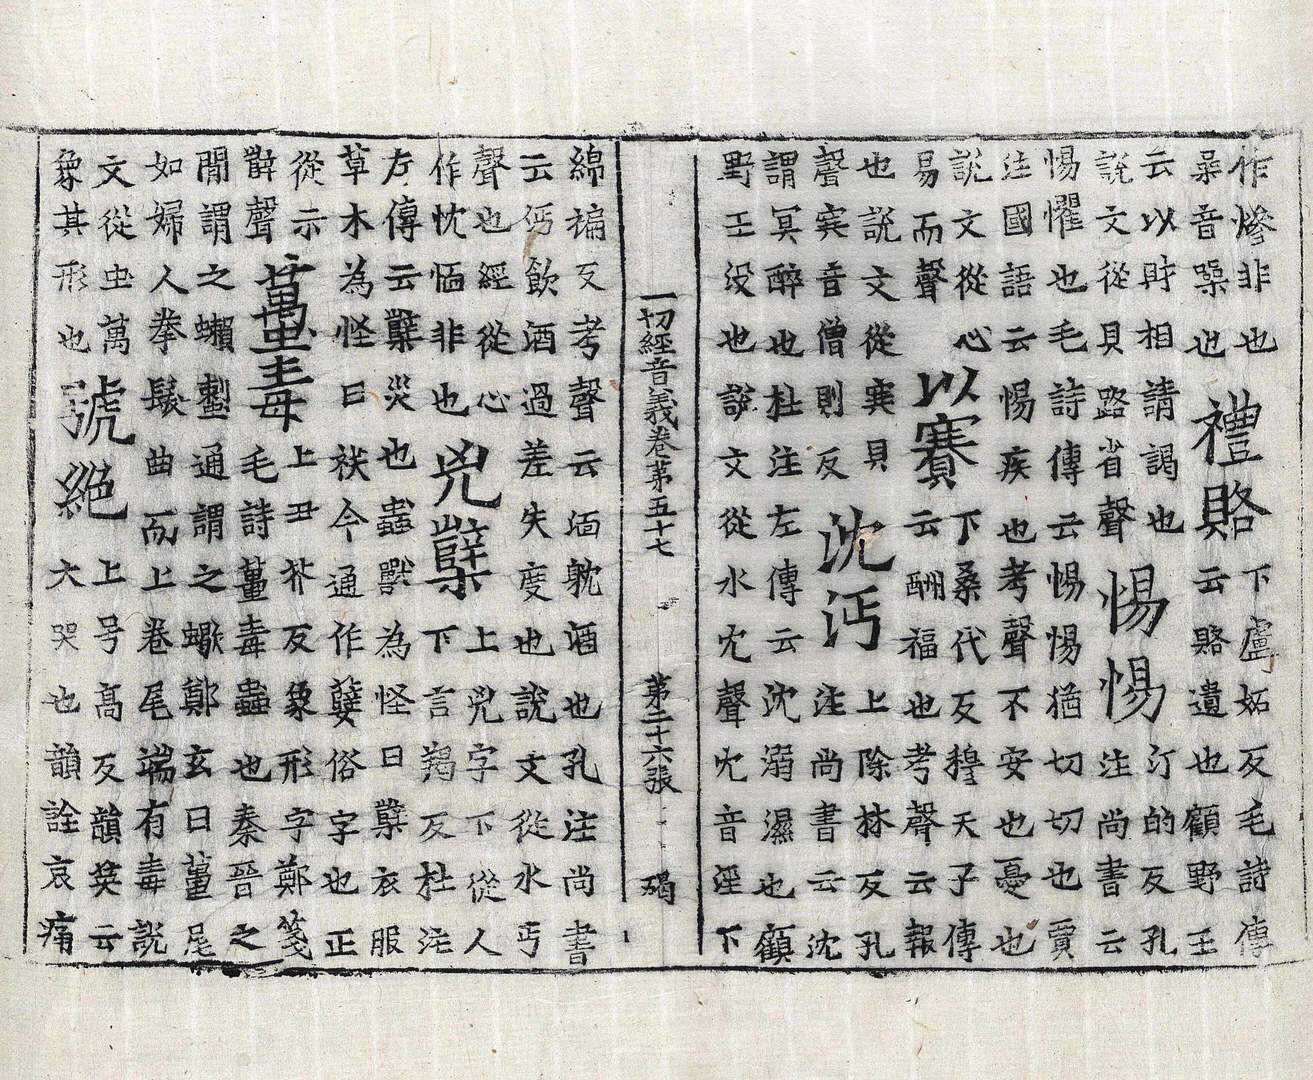 作慘非也
喿音噪也
禮賂
下盧妬反毛詩傳
云賂遺也顧野王
云以財相請謁也
說文從貝路省聲
惕惕
汀的反孔
注尚書云
惕懼也毛詩傳云惕惕猶切切也賈
注國語云惕疾也考聲不安也憂也
說文從心
易而聲
以賽
下桑代反穆天子傳
云酬福也考聲云報
也說文從貝
聲音僧則反
沈沔
上除林反孔
注尚書云沈
謂冥醉也杜注左傳云沈溺濕也顧
野王没也說文從水冘聲冘音淫下
一切經音義卷第五十七 第二十六張 碣
綿褊反考聲云湎躭酒也孔注尚書
云沔飲酒過差失度也說文從水丏
聲也經從心
作忱恓非也
兇櫱
上兇字下從人
下言羯反杜注
左傳云櫱災也蟲獸為怪曰櫱衣服
草木為怪曰祅今通作孽俗字也正
從示
辥聲
蠆毒
上丑芥反象形字鄭箋
毛詩蠆毒蟲也秦晉之
閒謂之通謂之蠍鄭玄曰蠆尾
如婦人拳髮曲而上卷尾端有毒說
文從虫萬
象其形也
號絕
上号髙反韻英云
大哭也韻詮哀痛